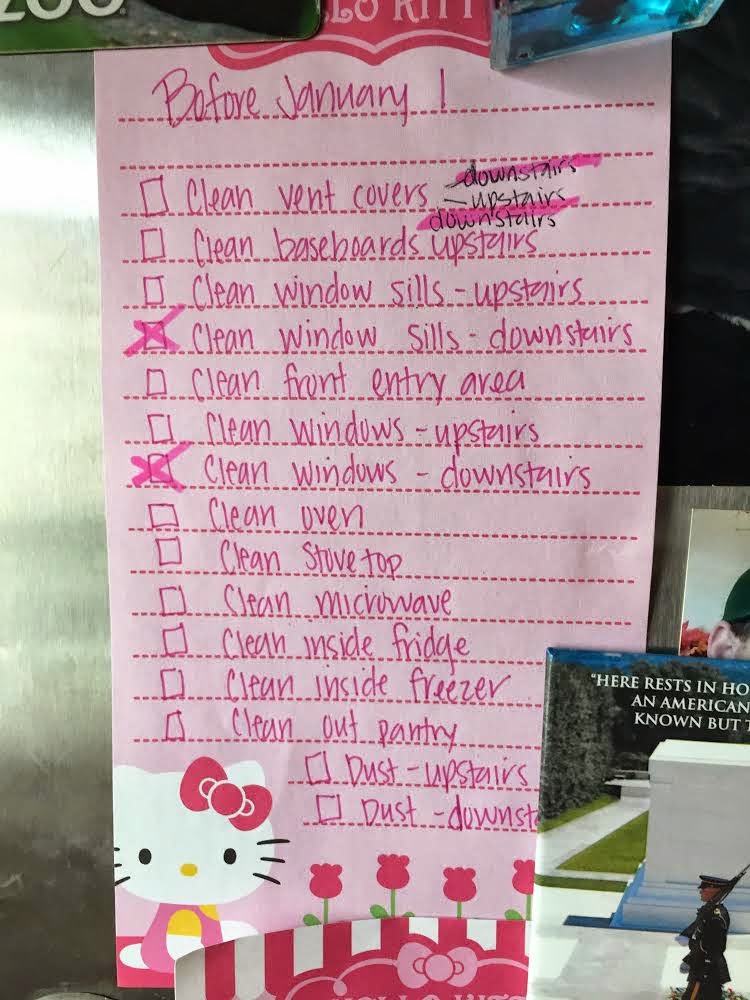 ZOO
LO KITT
Before January 1
Clean vent covers - downstairs
- upstairs
downstairs
Clean baseboards upstairs
Clean window sills - upstairs
Clean window sills - downstairs
Clean front entry area
Clean windows - upstairs
Clean windows - downstairs
Clean oven
Clean stove top
Clean microwave
Clean inside fridge
Clean inside freezer
Clean out pantry
Dust - upstairs
Dust - downst
"HERE RESTS IN HO
AN AMERICAN
KNOWN BUT T
HELLO KITTY